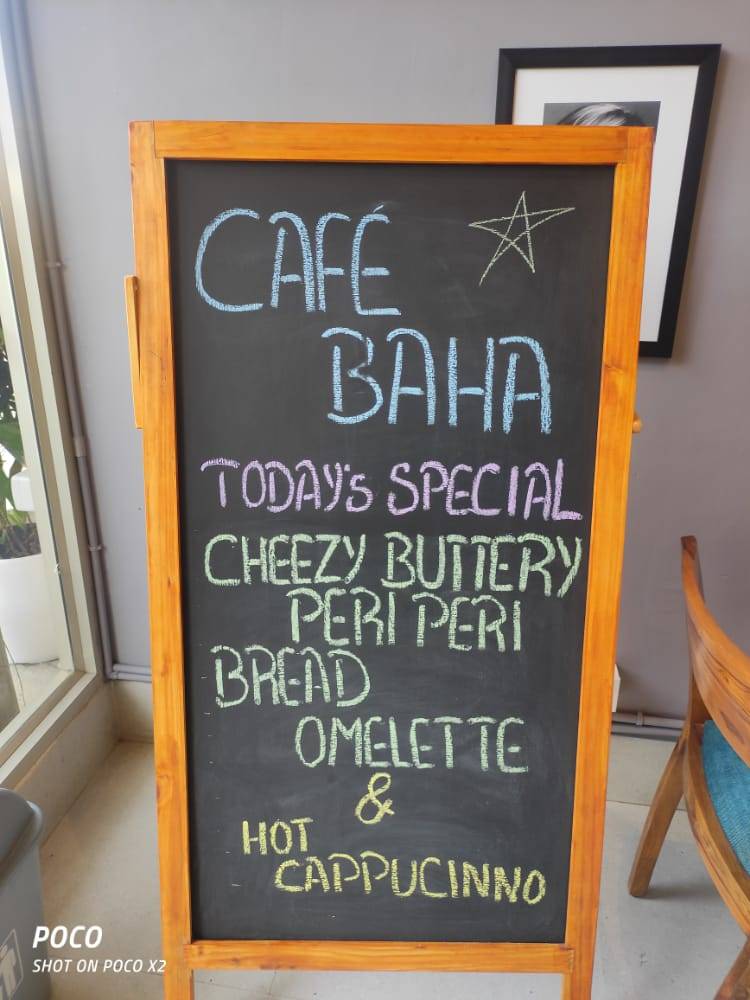 CAFÉ
BAHA
TODAY'S SPECIAL
CHEEZY BUTTERY
PERI PERI
BREAD
OMELETTE
&
HOT
CAPPUCINNO
POCO
SHOT ON POCO X2